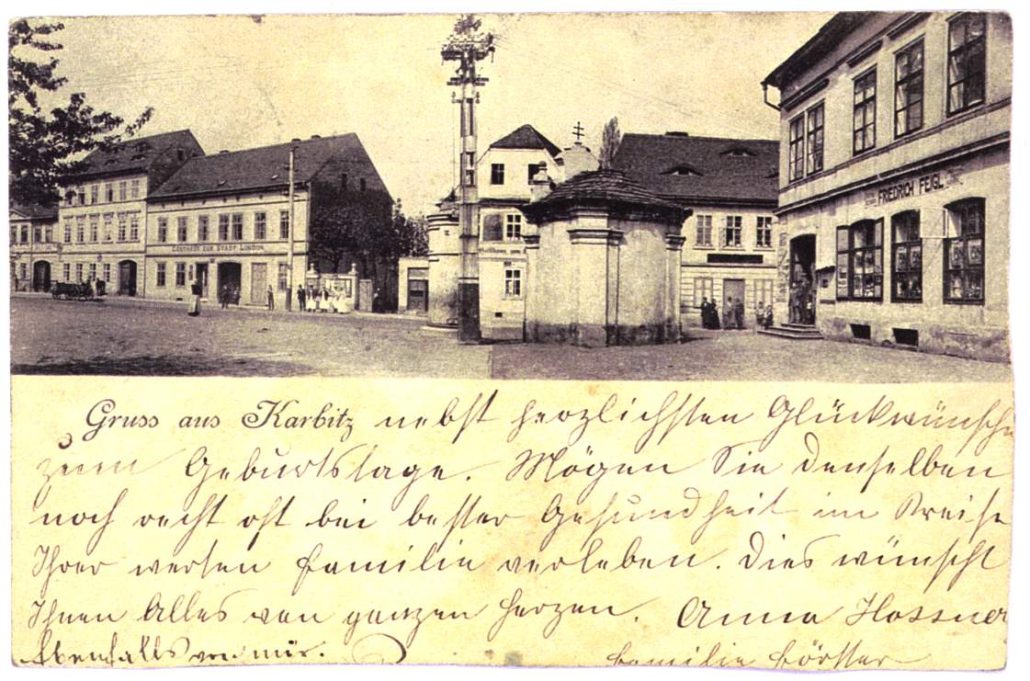 GASTHAUS ZUR STADT LONDON
FRIEDRICH FEIGL
Gruss aus Karbitz nebst herzlichsten Glückwünsche
zum Geburtstage. Mögen Sie denselben
noch recht oft bei bester Gesundheit im Kreise
Ihrer werten Familie verleben. Dies wünscht
Ihnen Alles von ganzen Herzen. Anna Hossner
Ebenfalls von mir. Familie